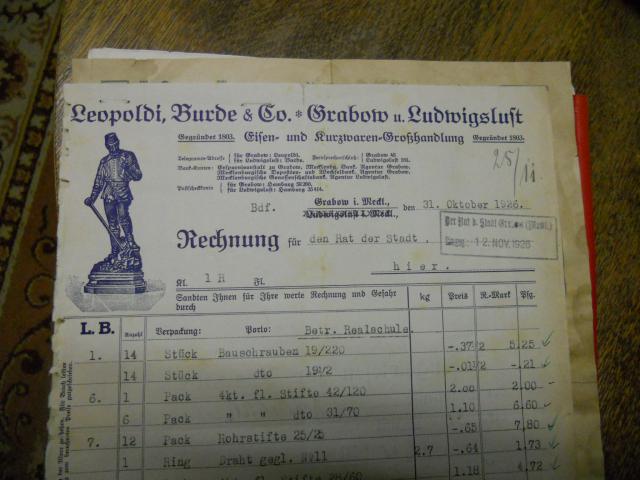 Leopoldi, Burde & Co. * Grabow u. Ludwigslust
Gegründet 1803. Eisen- und Kurzwaren-Großhandlung Gegründet 1803.
Telegramm-Adresse für Grabow: Leopoldi. für Ludwigslust: Burde. Fernsprechanschluß: Grabow
Bank-Konten:
Mecklenburgische Genossenschaftsbank, Agentur Ludwigslust.
Postscheckkonten für Grabow: Hamburg
für Ludwigslust: Hamburg
25/11
Grabow i. Meckl.,
Bdf. Ludwigslust i. Meckl., den 31. Oktober 1926.
Der Rat d. Stadt Grabow (Meckl.)
Eing. 12. NOV. 1926
Rechnung für den Rat der Stadt.
hier.
Kl. 1 R Fl.
Sandten Ihnen für Ihre werte Rechnung und Gefahr durch kg Preis R.-Mark Pfg.
L. B. Anzahl Verpackung: Porto: Betr. Realschule
1. 14 Stück Bauschrauben 19/220 -.37½ 5.25
14 Stück dto 19½ -.01½ -.21
6. 1 Pack 4kt. fl. Stifte 42/120 2.00 2.00
6 Pack " " dto 31/70 1.10 6.60
7. 12 Pack Rohrstifte 25/25 -.65 7.80
1 Ring Draht gegl. 2.7 -.64 1.73
Stifte 28/60 1.18 4.72